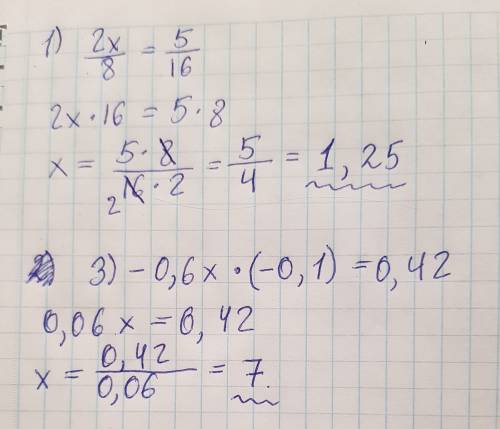 1) 2x/8 = 5/16
2x·16 = 5·8
x = 5·8/16·2 2 = 5/4 = 1,25
3) -0,6x·(-0,1) = 0,42
0,06x = 0,42
x = 0,42/0,06 = 7.